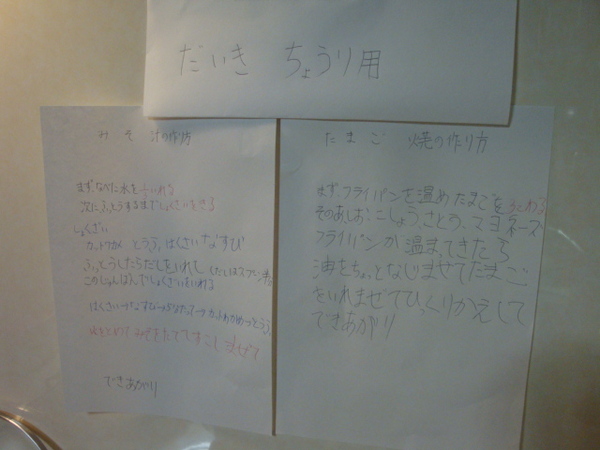 だいき ちょうり用
みそ汁の作り方
まずなべに水を入れる
次にふっとうするまでしょくざいをきる
しょくざい
カットワカメ とうふ はくさい なすび
ふっとうしたらだしをいれて
このじゅんばんでしょくざいをいれる
はくさい
火をとめて みそをたして すこしまぜて
できあがり
たまご焼の作り方
まずフライパンを温めたまごを
そのあしおこしょう、さとう、マヨネーズ
フライパンが温まってきたら
油をちょっとなじませてたまご
をいれまぜてひっくりかえして
できあがり